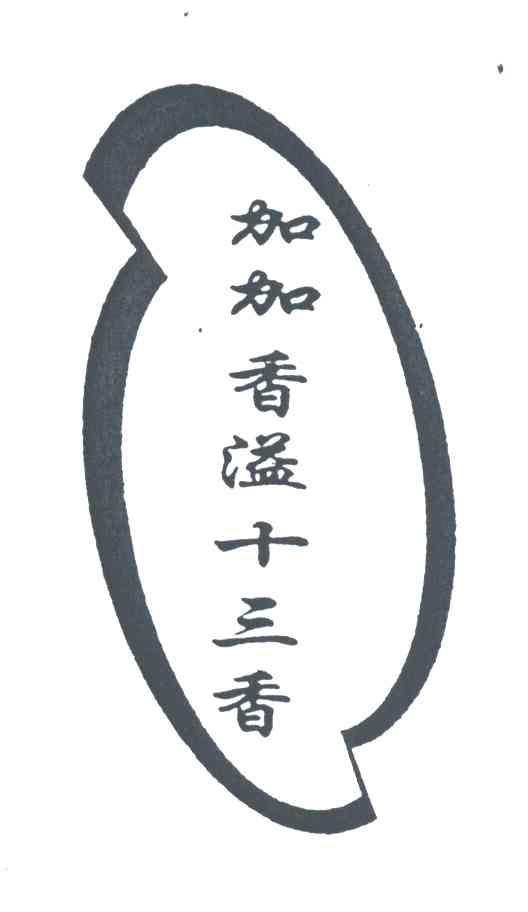 加加香溢十三香